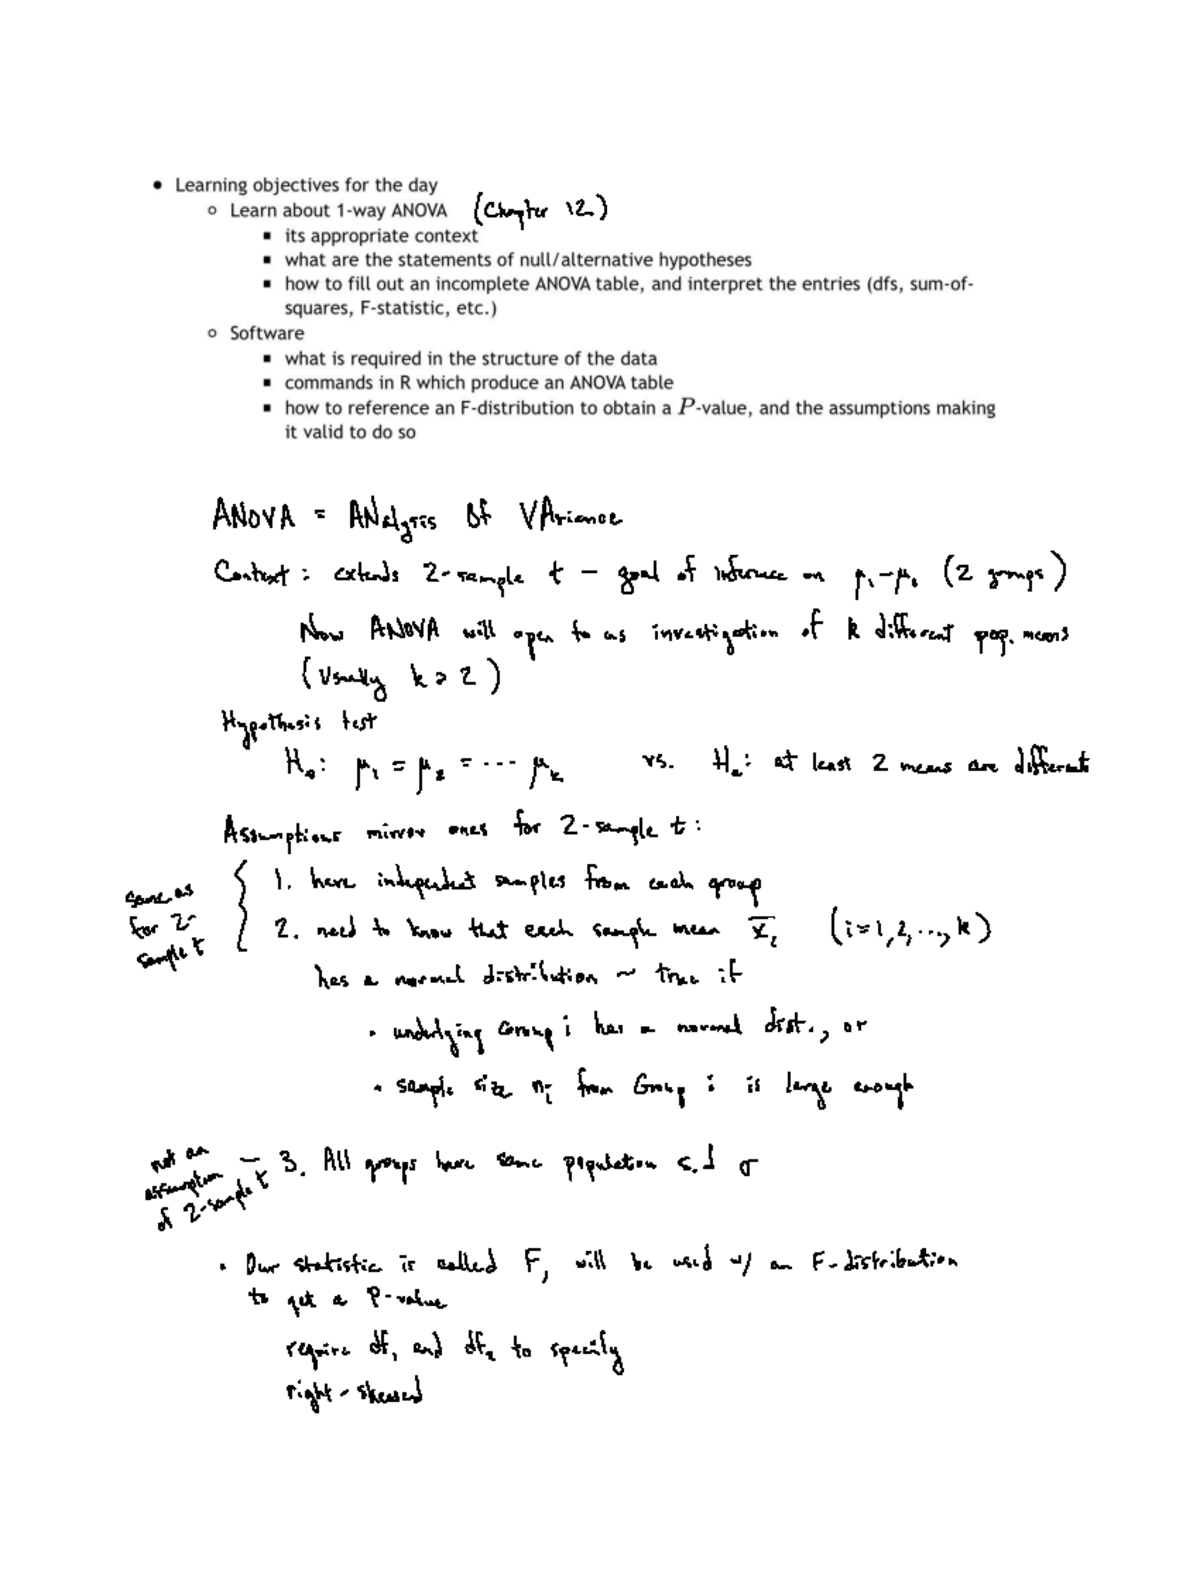 • Learning objectives for the day
○ Learn about 1-way ANOVA (Chapter 12)
▪ its appropriate context
▪ what are the statements of null/alternative hypotheses
▪ how to fill out an incomplete ANOVA table, and interpret the entries (dfs, sum-of-
squares, F-statistic, etc.)
○ Software
▪ what is required in the structure of the data
▪ commands in R which produce an ANOVA table
▪ how to reference an F-distribution to obtain a P-value, and the assumptions making
it valid to do so
ANOVA = ANalysis Of VAriance
Context: extends 2-sample t — goal of inference on μ₁-μ₂ (2 groups)
Now ANOVA will open to us investigation of k different pop. means
(Usually k > 2)
Hypothesis test
H₀: μ₁ = μ₂ = ... μₖ vs. Hₐ: at least 2 means are different
Assumptions mirror ones for 2-sample t:
same as
for 2-
sample t
1. have independent samples from each group
2. need to know that each sample mean x̄ᵢ (i=1,2,...,k)
has a normal distribution ~ true if
• underlying Group i has a normal dist., or
• sample size nᵢ from Group i is large enough
not an
assumption
of 2-sample t
— 3. All groups have same population s.d σ
• Our statistic is called F, will be used w/ an F-distribution
to get a P-value
require df₁ and df₂ to specify
right-skewed